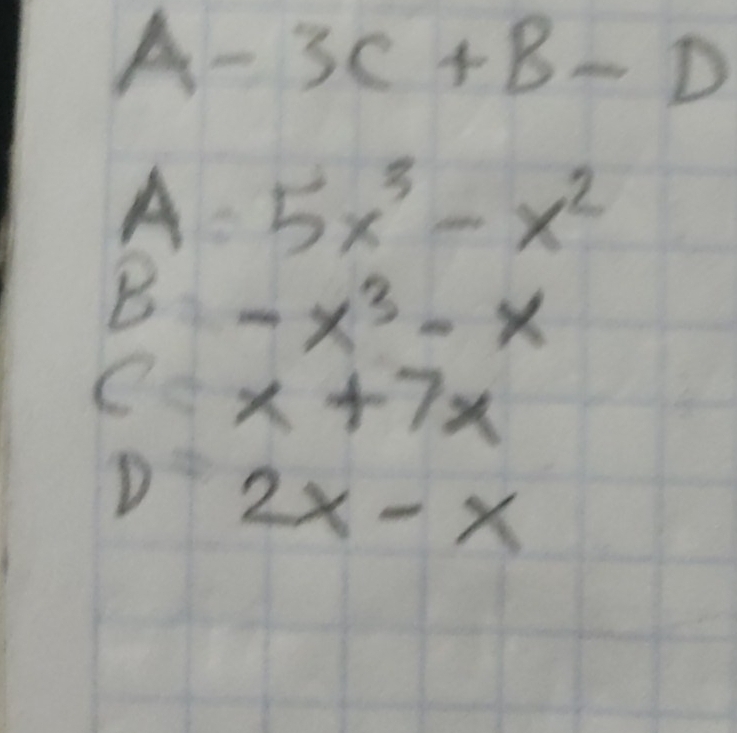 A - 3C + B - D
A = 5x³ - x²
B = -x³ - x
C = x + 7x
D = 2x - x